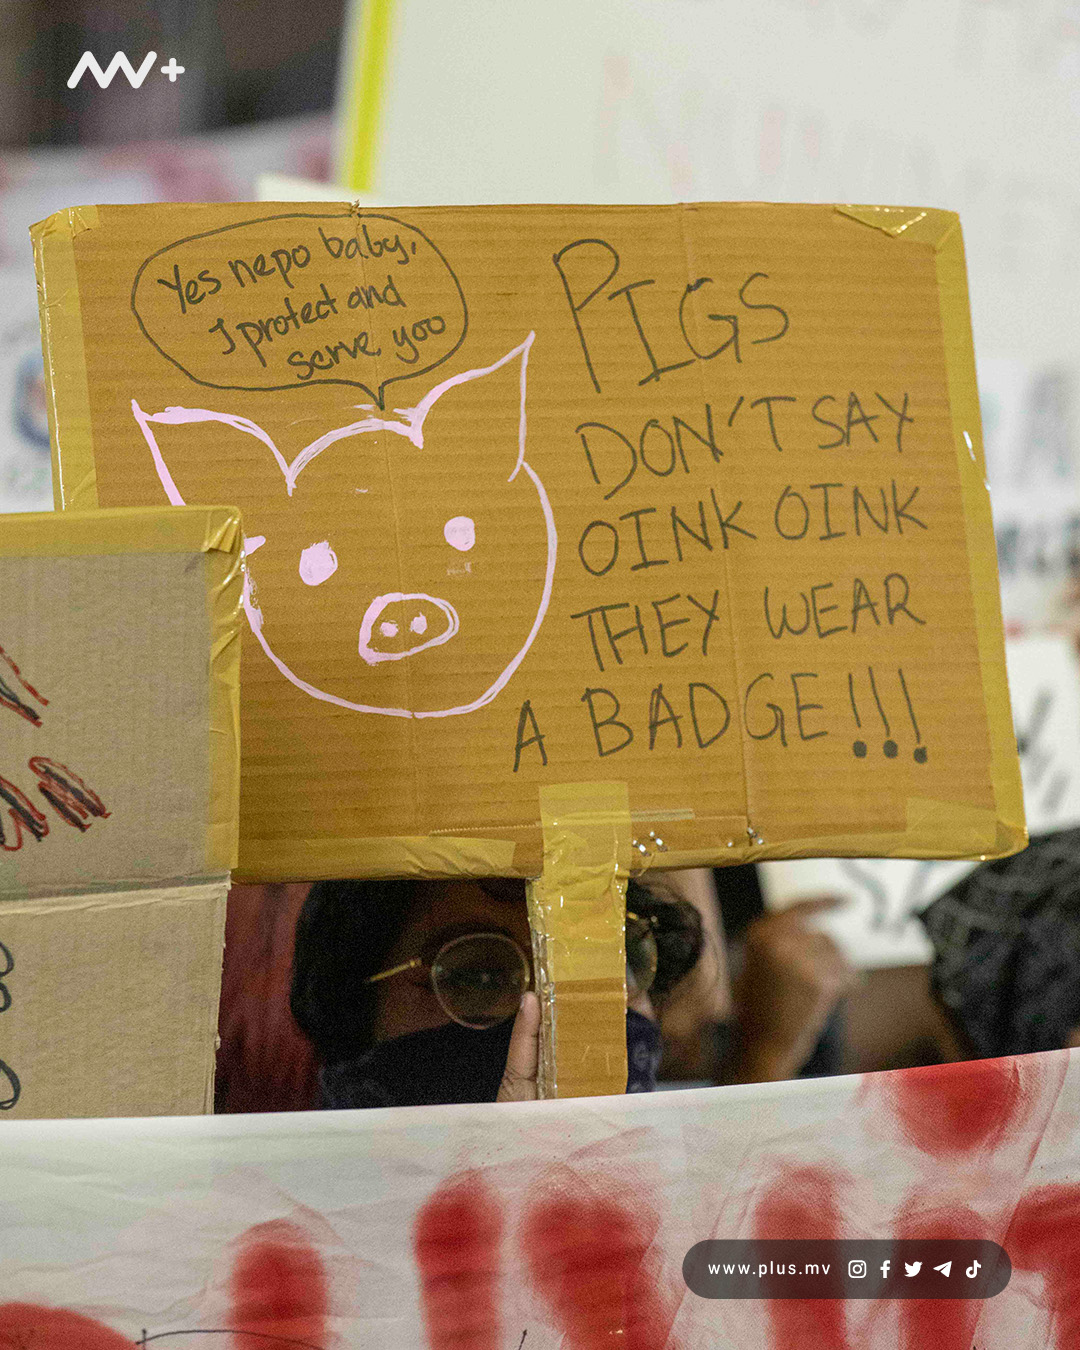 Yes nepo baby,
I protect and
serve yoo
PIGS
DON'T SAY
OINK OINK
THEY WEAR
A BADGE!!!
www.plus.mv